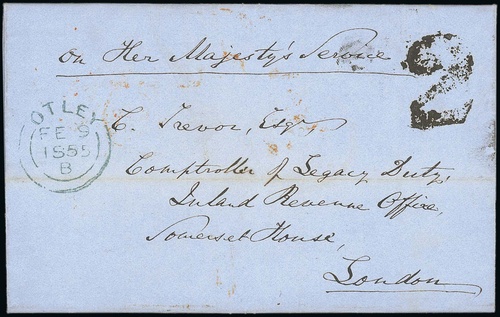 on Her Majesty's Service
2
OTLEY
FE 9
1855
B
C. Trevor, Esqr
Comptroller of Legacy Duty,
Inland Revenue Office,
Somerset House,
London